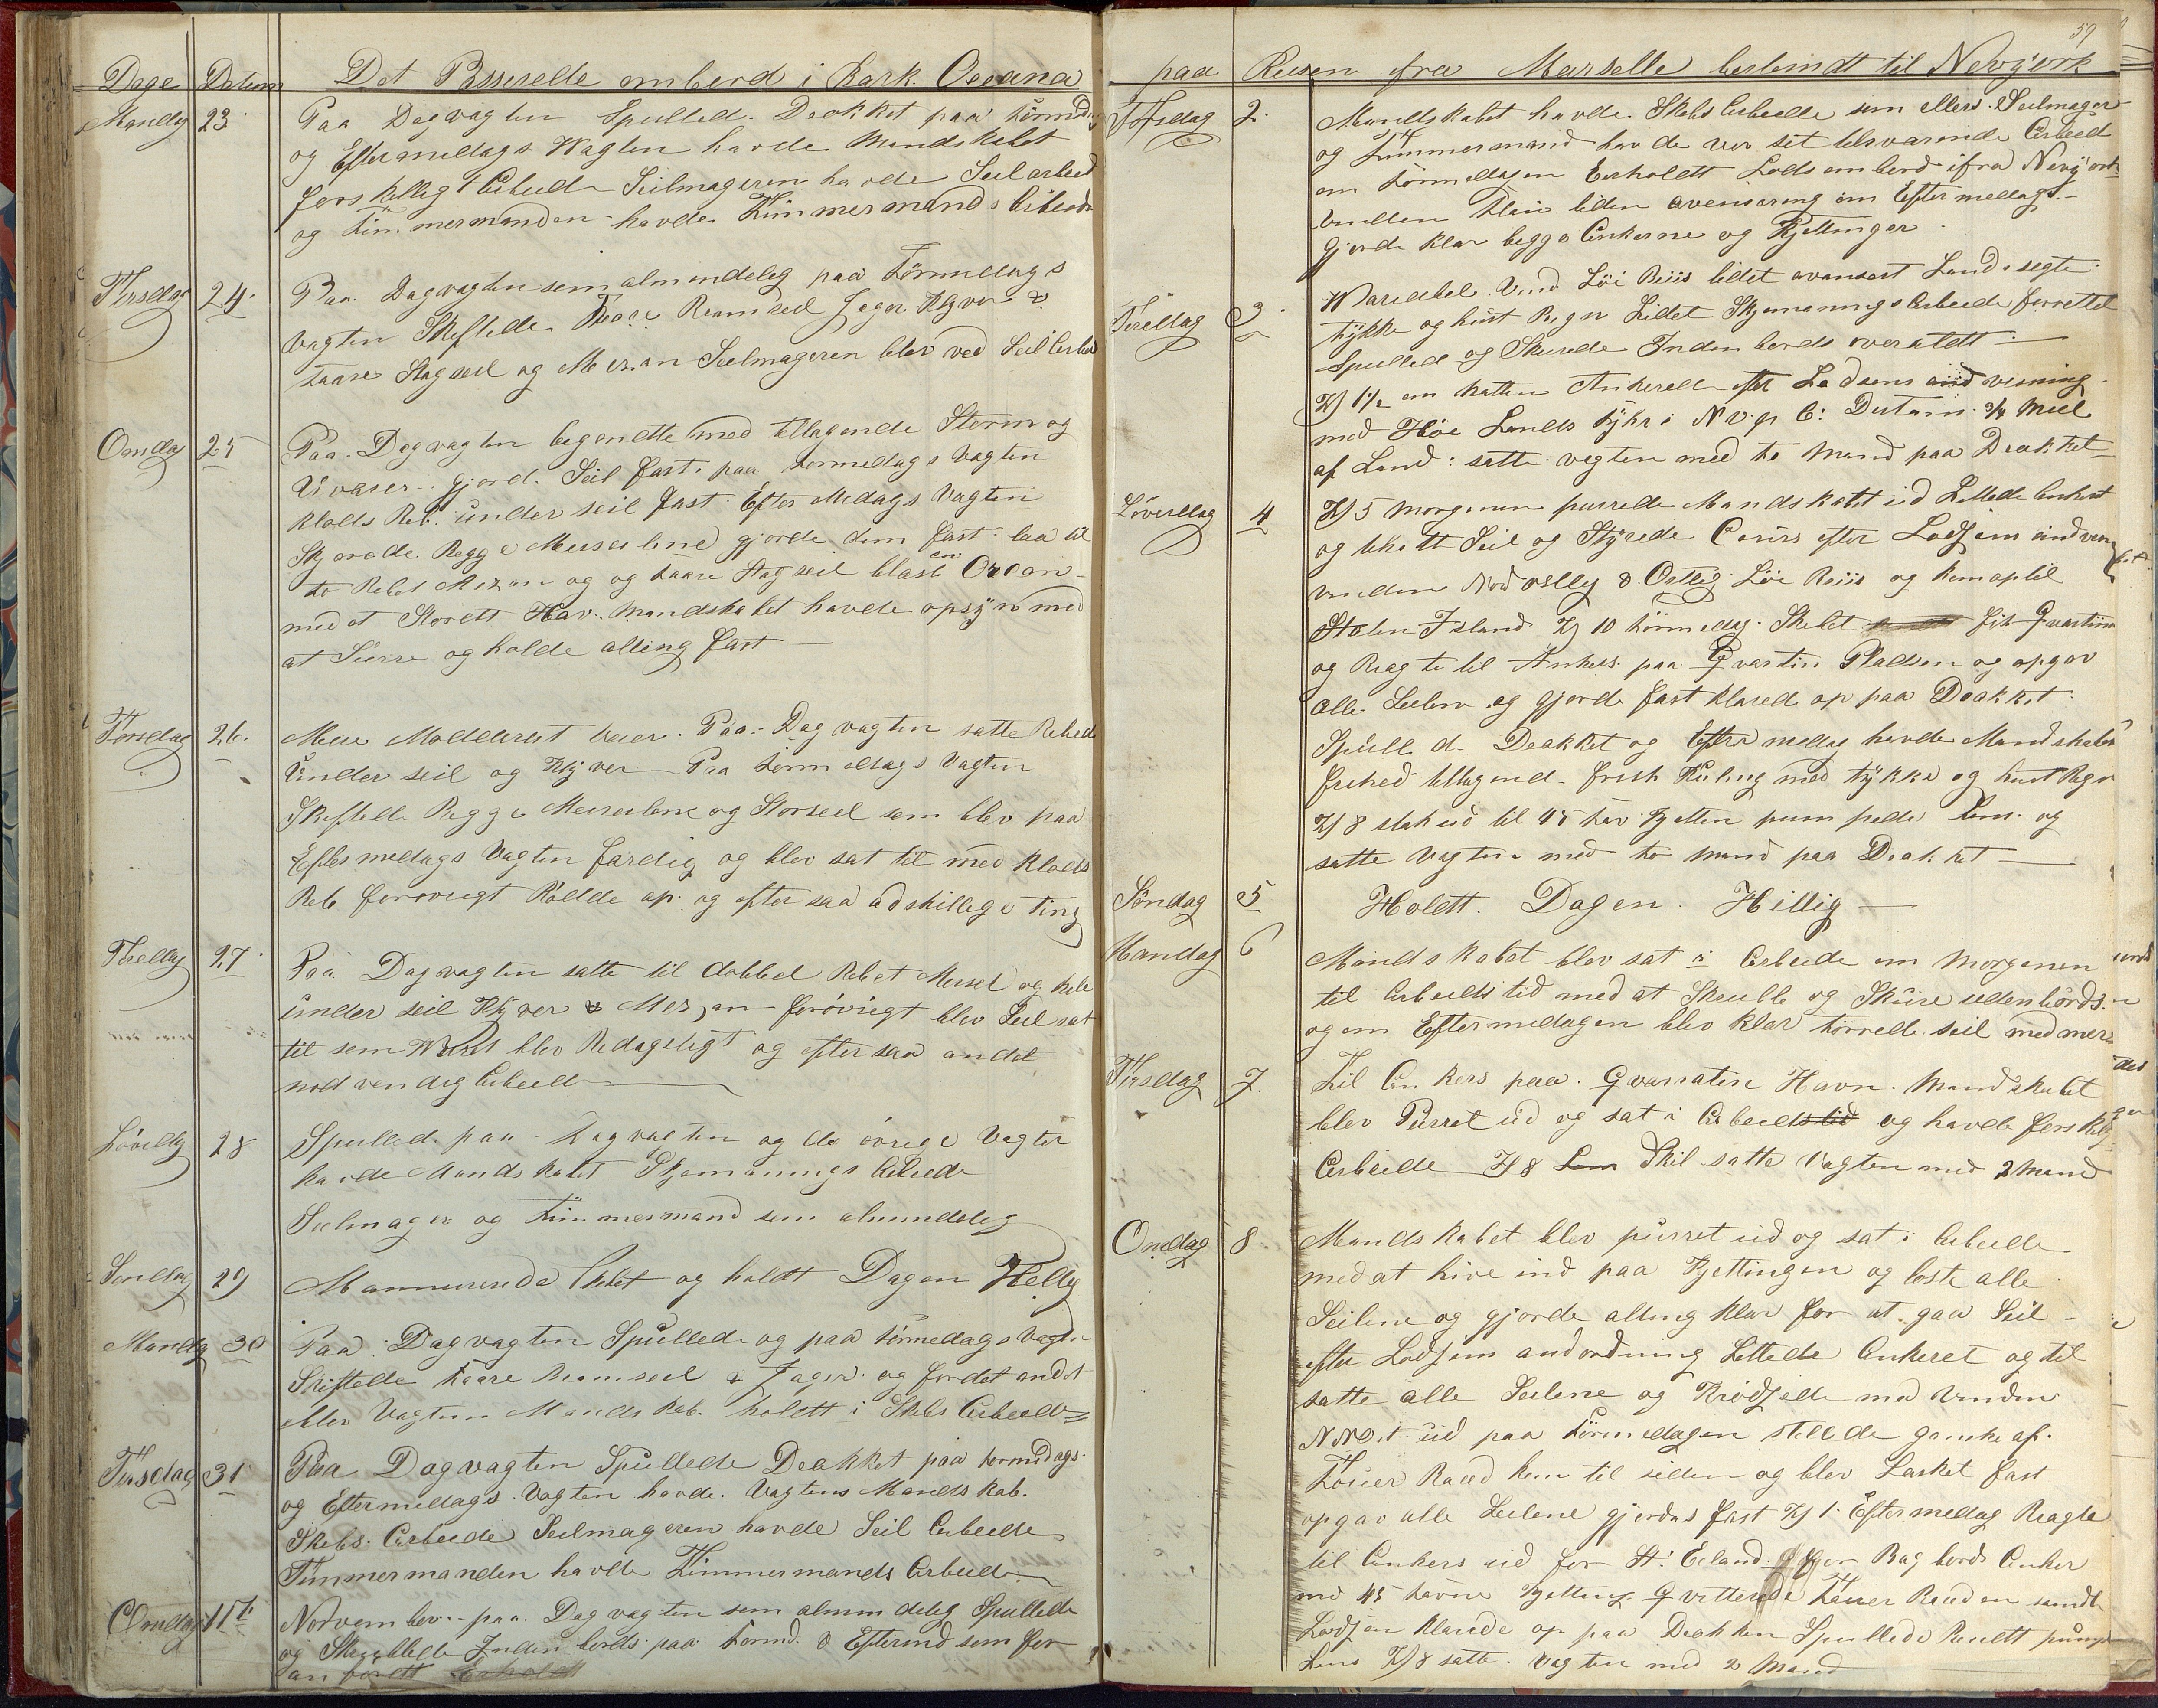 Dage Datum Det Passerelle ombord i Bark Oceana
Mandag 23 Paa Dagvagten Spulled. Dækket paa formd.
og Eftermedags Wagten havde Mandskabet
forskellig Arbeid Seilmageren havde Seilarbeid
og Timmermanden havde Timmermands Arbeide
Tirsdag 24 Paa Dagvagten som almindeleg paa Formedags
Vagten Skiftede Raamseil Jager Klyver &
Staare Stagseil og Mesan Seelmageren blev ved Seil Arbeid
Onsdag 25 Paa Dagvagten begendte med tillagende Storm og
Uvæser gjord. Seil fast paa formedags Vagten
klods Reb. under seil fast Efter Medags Vagten
Skjorode Begge Merselene gjorde dem fast laa til
to Rebet Mezan og og Staare Stagseil blast en Orcan
med et Storett Hav. Mandskabet havde opsyn med
at Surre og holde alting fast
Torsdag 26. Mere Modderat veier. Paa Dagvagten satte Rebed
Under seil og Klyver Paa formedags Vagten
Skiftede Begge Merselene og Storseil som blev paa
Eftermedags Vagten færdig og blev sat til med Klods
Reb forøvrigt Rødde op og efter saa adskillige Ting
27 Paa Dagvagten satte til dobbel Rebet Mersel og hele
under seil Klyver & Mezan forøvrigt blev Seil sat
til som Wind blev Redageligt og efter saa andet
nødvendig Arbeid
28 Spulled. paa Dagvagten og de øvrige Vagter
havde Mandskabet Skjemannings Arbeide
Seelmager og Timmermand som almindeleg
29 og holdt Dagen Hellig
Mandag 30 Paa Dagvagten Spulled. og paa formedags Vagten
Skiftede Raamseil & Jager og fordet andet
blev Vagtens Mandskab. holdtt i Skibs Arbeide
Tirsdag 31 Paa Dagvagten Spullede Deakket paa formidags
og Eftermidags Vagten havde Vagtens Mandskab.
Skebs Arbeide Seilmageren havde Seil Arbeide
Timmermanden havde Timmermands Arbeide
Onsdag 1ste November paa Dagvagten som almindeleg Spullede
og Inden bords paa formd. & Eftermd som for
an førdtt
59
paa Reisen fra Marselle bestemdt til Nevyork
Torsdag 2. Mandskabet havde Skebs Arbeide som ellers Seelmager
og Timmermand havde ved sit tilsvarende Arbeid
om formedagen Erholdtt Lods ombord ifra Nevyork
Vinden liden avensering om Eftermedags
Gjorde klar begge Ankerne og Kjettinger
3 Wariabel Vind Løi Briis lidet avansert Land i segte
tykke og hint Regn Lidet Skjemannings Arbeide forrettet
Spulled og Skurede Inden bords overaldtt
Kl 1½ om Natten Ankerede efter Lodsens andvisning
med Høie Lands Fyhr i N.V. p C: Distans ¾ Miil
af Land: satte vagten med to Mand paa Deakket
4 Kl 5 Morgenen purrede Mandskabet ud Lettede Ankeret
og tilsatt Seil og Styrede Cours efter Lodsens andven
vinden Nordvestlig & Ostlig Løi Briis og kom op til
Staten Island Kl 10 formedag. Skebet fik Qvarantin
og Bragte til Ankers paa Qvarantin Pladsen og opgav
alle Seelene og gjorde fast klared op paa Deakket
Spulled. Deakket og Eftermedag havde Mandskabet
frihed tiltagend. frisk Kuling med tykke og hint Regn
Kl 8 stak ud til 45 Kjetten pumpede Lens og
satte Vagten med to Mand paa Deakket
Søndag 5 Holdtt. Dagen. Hillig
Mandag 6 Mandskabet blev sat i Arbeide om Morgenen
til Arbeids tid med at Skrubbe og Skure udenbords
og om Eftermedagen blev klar tørrede seil med mere
Tirsdag 7. Til Ankers paa Qvarratine Havn. Mandskabet
blev Purret ud og sat i Arbeidstid og havde forskellig
Arbeide Kl 8 satte Vagten med 2 Mand
Onsdag 8 Mandskabet blev purret ud og sat i Arbeide
med at hive ind paa Kjettingen og løste alle
Seilene og gjorde alting klar for at gaa Seil
efter Lodsens andordning Lettede Ankeret og til
satte alle Seilene og Krodsede med Vinden
NNO.t ud paa Formedagen stillede ganske af.
Touer Baad kom til siden og blev Lasket fast
opgav alle Seelene gjordes fast Kl 1 Eftermedag Bragte
til Ankers ud for St. Eeland. Bagbords Anker
med 45 favne Kjetting Qvitterede Touer Baaden samdt
Lodsen klarede op paa Deakken Spullede Reentt pumpe
Lens Kl 8 satte Vagten med 2 Mand